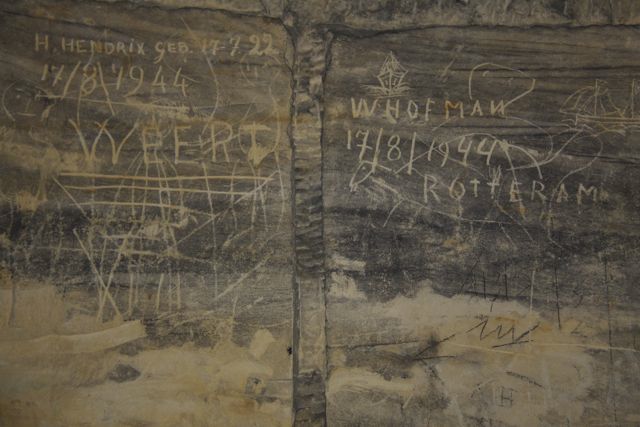 H. HENDRIX GEB. 17-7.22
17/8/1944
WEERT
W HOFMAN
17/8/1944
ROTTERAM
H